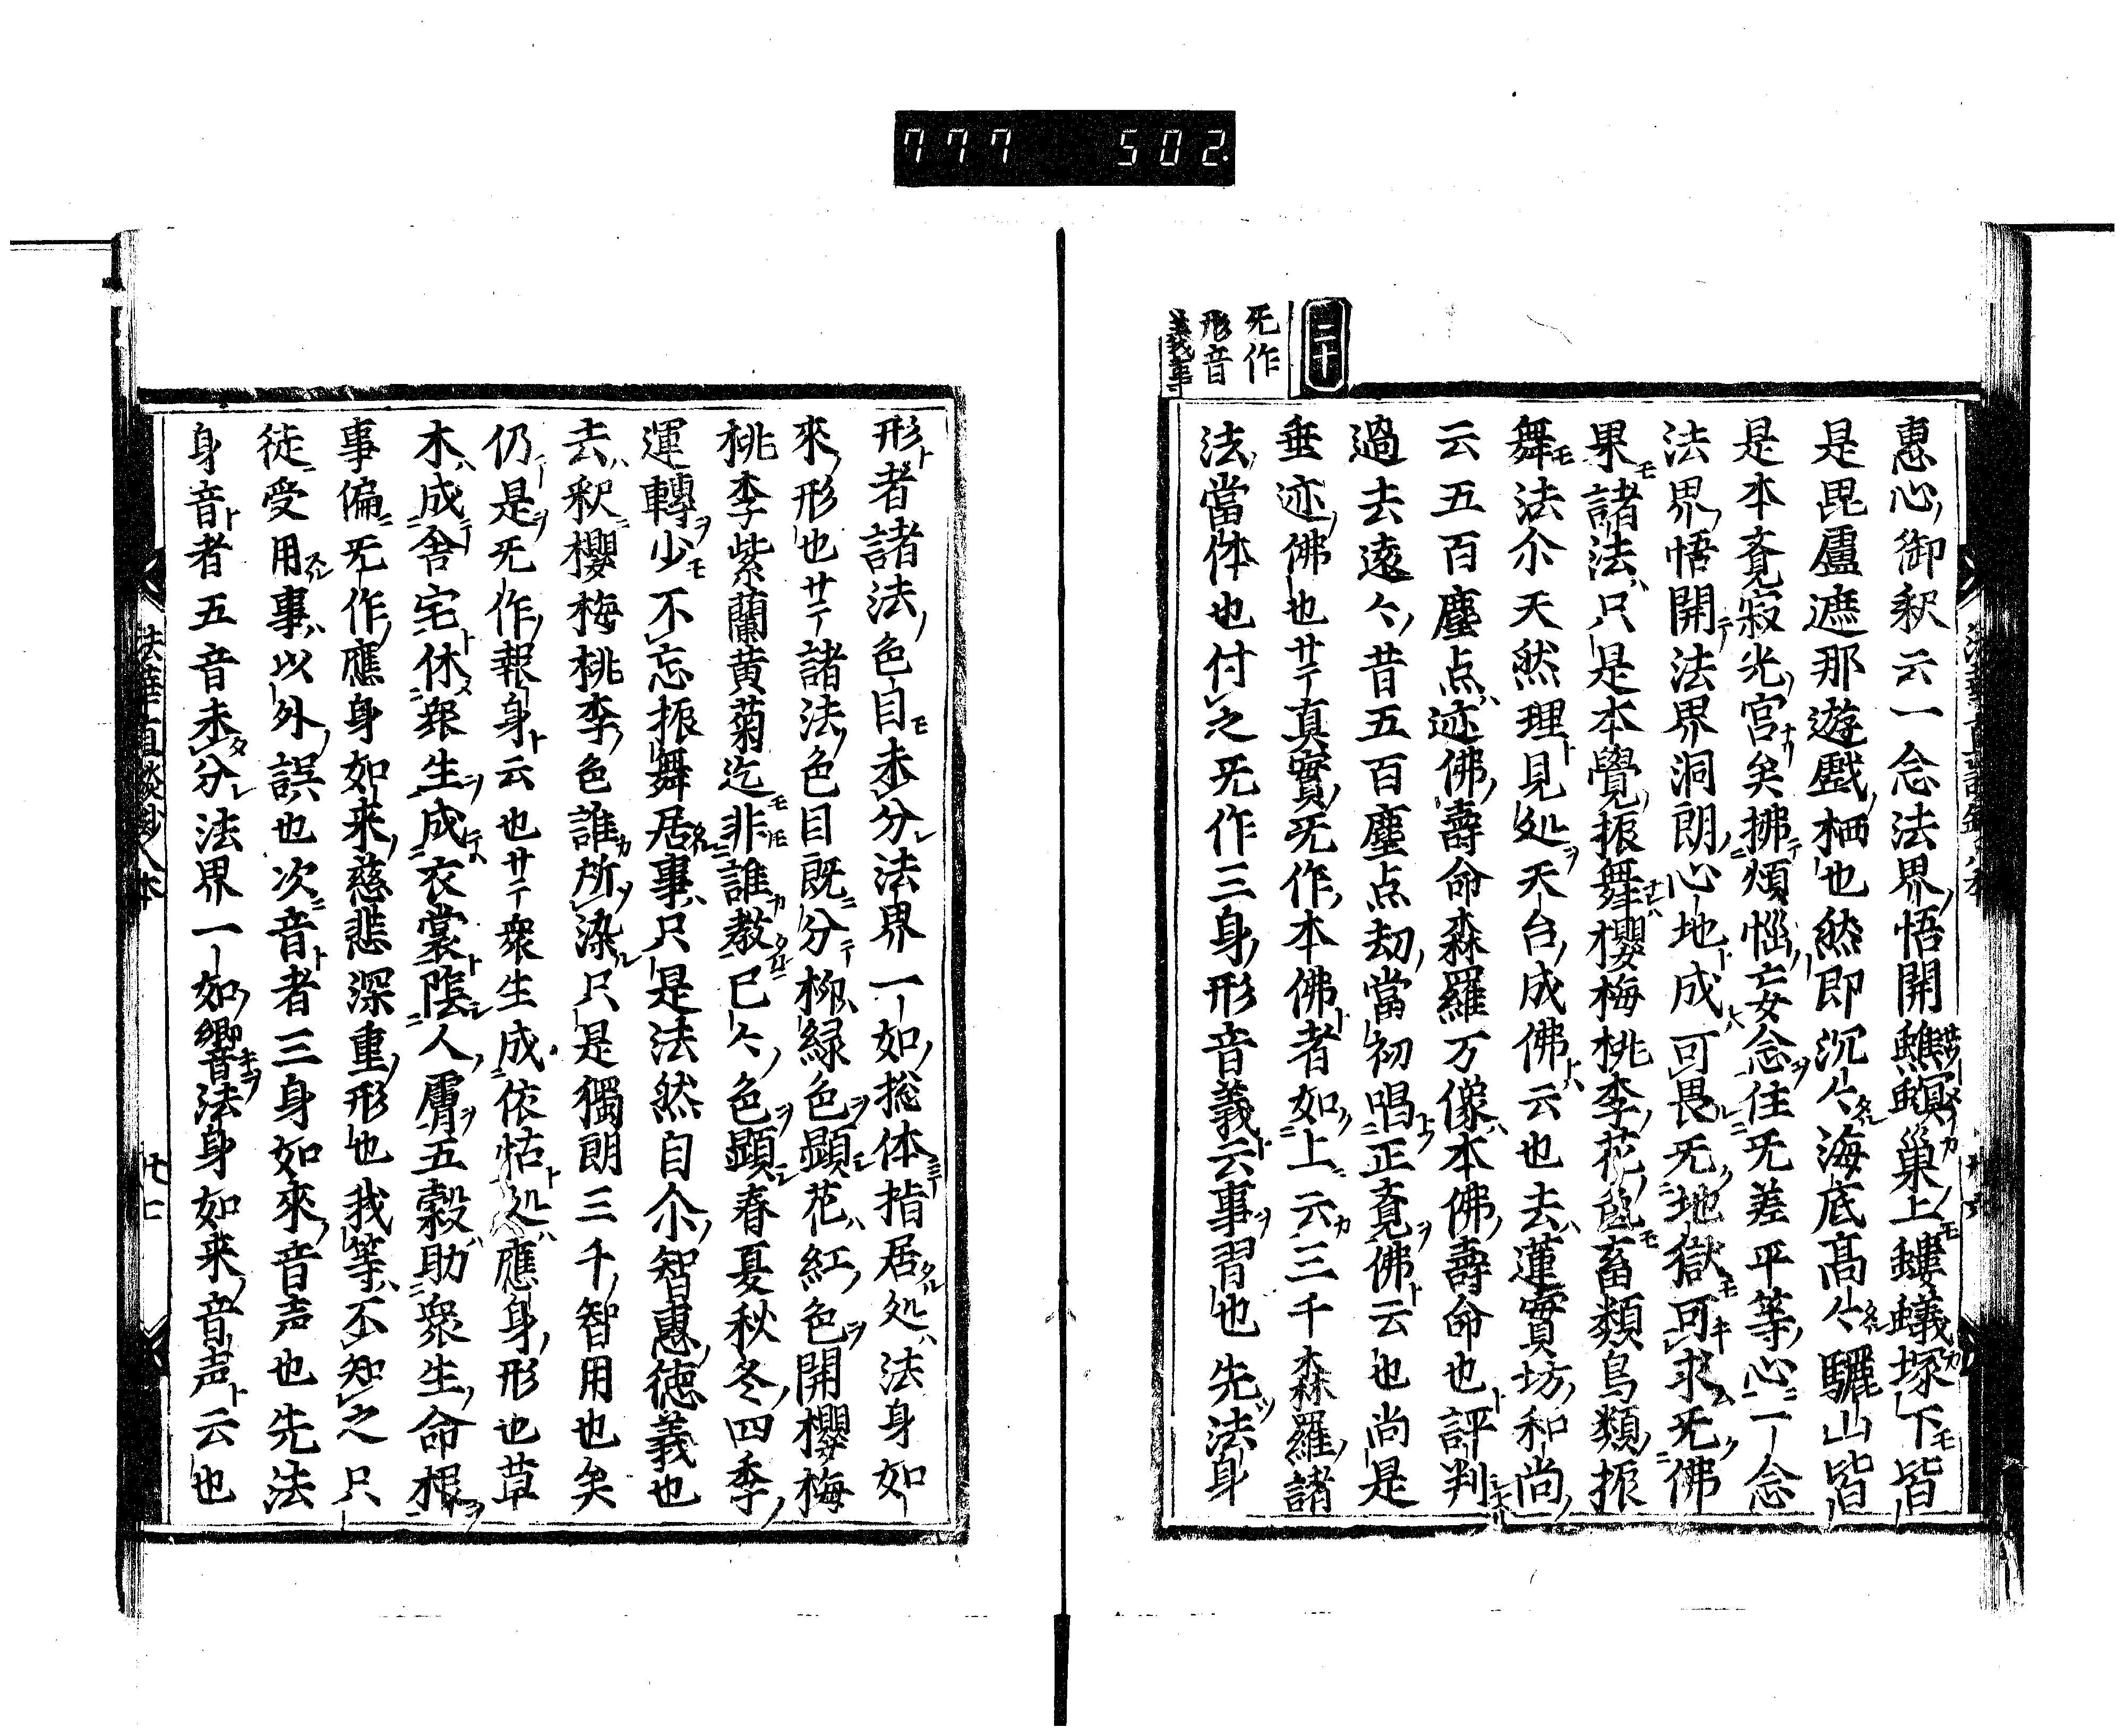 777 502
二十
旡作
形音
義事
惠心御釈云一念法界悟開蟭螟巣上螻蟻塚下皆
是毘盧遮那遊戲栖也然即沉々海底高々驪山皆
是本覔寂光宮矣拂煩惱妄念住旡差平等心一念
法界悟開法界洞朗心地成可畏旡地獄可求旡佛
果諸法只是本覺振舞櫻梅桃李花色畜類鳥類振
舞法尒天然理見処天台成佛云也去蓮實坊和尚
云五百塵点迹佛壽命森羅万像本佛壽命也評判
過去遠々昔五百塵点劫當初唱正覔佛云也尚是
垂迹佛也サテ真實旡作本佛者如上云三千森羅諸
法當体也付之旡作三身形音義云事習也先法身
形者諸法色目未分法界一如捴体指居処法身如
來形也サテ諸法色目既分柳緑色顕花紅色開櫻梅
桃李紫蘭黄菊迄非誰教已々色顕春夏秋冬四季
運轉少不忘振舞居事只是法然自尒智惠徳義也
去釈櫻梅桃李色誰所染只是獨朗三千智用也矣
仍是旡作報身云也サテ衆生成依怙処應身形也草
木成舎宅休衆生成衣裳隂人膚五穀助衆生命根
事偏旡作應身如来慈悲深重形也我等不知之只
徒受用事以外誤也次音者三身如來音声也先法
身音者五音未分法界一如響法身如来音声云也
法華直談鈔八本
廿七